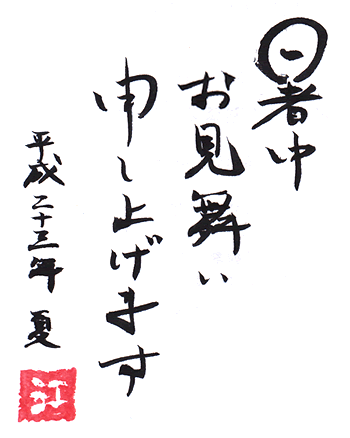 暑中
お見舞い
申し上げます
平成二十三年 夏
江